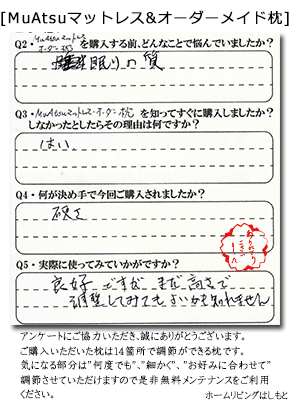 [MuAtsuマットレス&オーダーメイド枕]
Q2・MuAtsuマットレス
オーダー枕 を購入する前、どんなことで悩んでいましたか?
眠りの質
Q3・MuAtsuマットレス・オーダー枕 を知ってすぐに購入しましたか?
しなかったとしたらその理由は何ですか?
はい
Q4・何が決め手で今回ご購入されましたか?
硬さ
Q5・実際に使ってみていかがですか?
良好ですが まだ高さで
調整してみてもよいかも知れません
アンケートにご協力いただき、誠にありがとうございます。
ご購入いただいた枕は14箇所で調節ができる枕です。
気になる部分は"何度でも"、"細かく"、"お好みに合わせて"
調節させていただけますので是非無料メンテナンスをご利用
ください。
ホームリビングはしもと